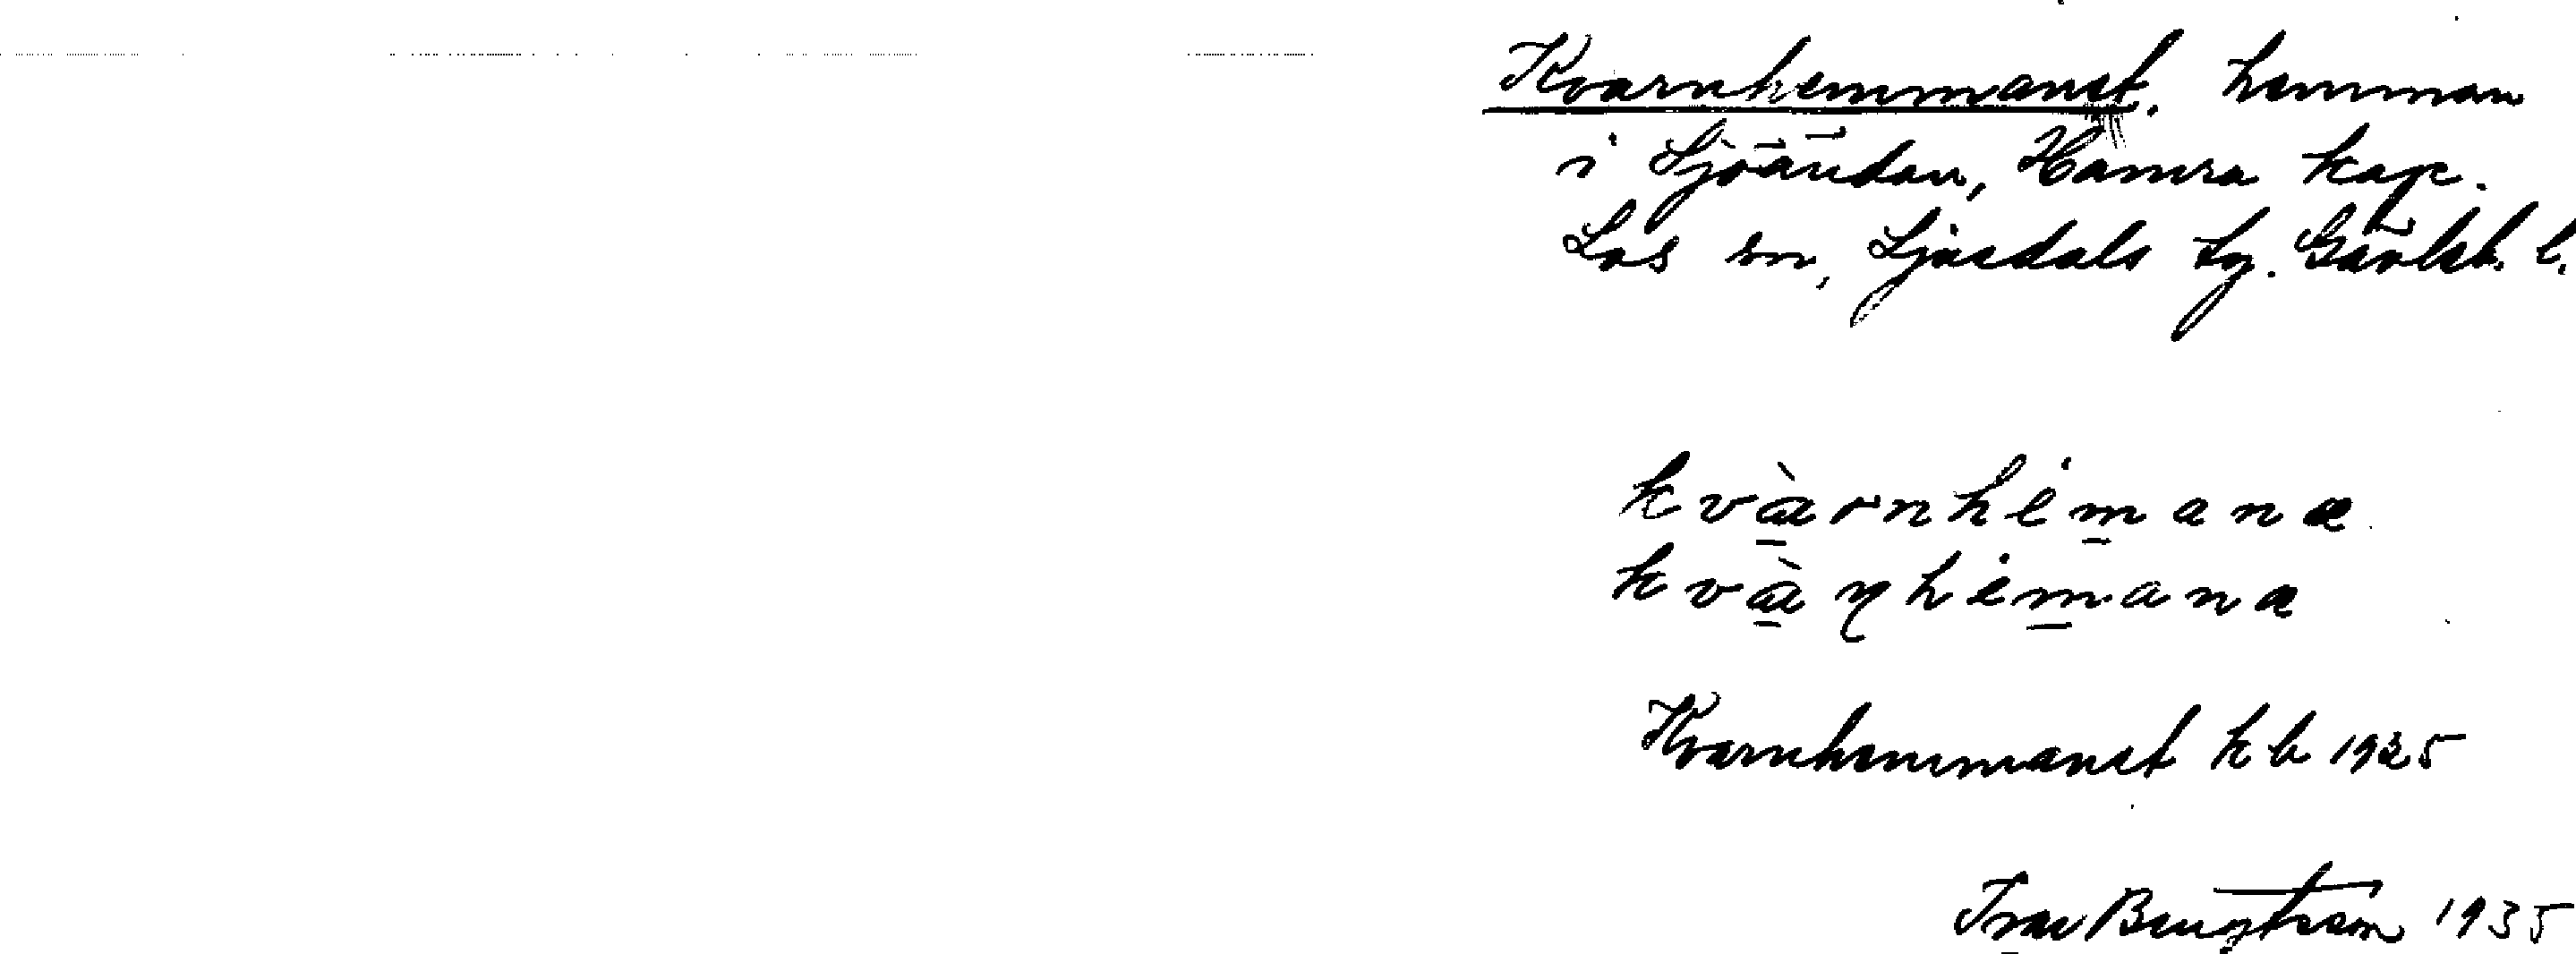 Kvarnhemmanet. hemman
i Sjöändan, Hamra kap.
Los sn, Ljusdals tg. Gävleb. l.
kvæ̀rnhemanæ
kvæ̀ɳhemana
Kvarnhemmanet kb 1925
Ivar Bengtsson 1935